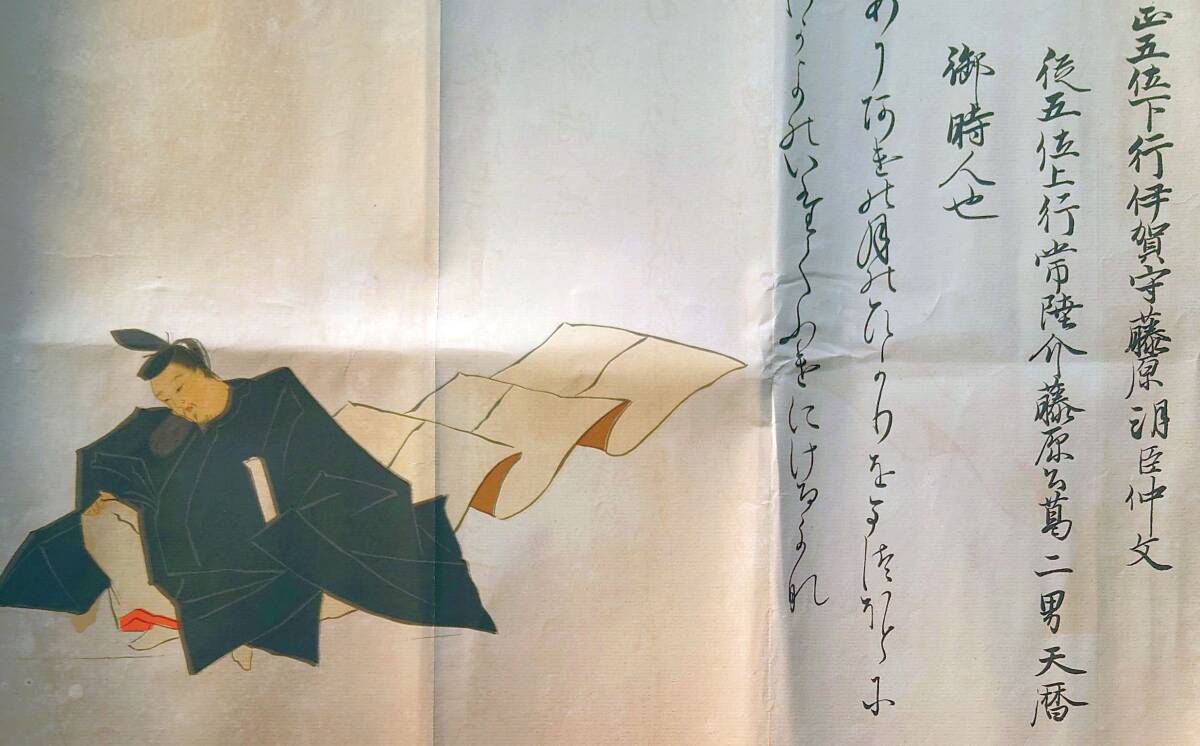 正五位下行伊賀守藤原朝臣仲文
従五位上行常陸介藤原公葛二男天暦
御時人也
ありあけの月のひかりをまつほとに
わかよのいたくふけにけるかな